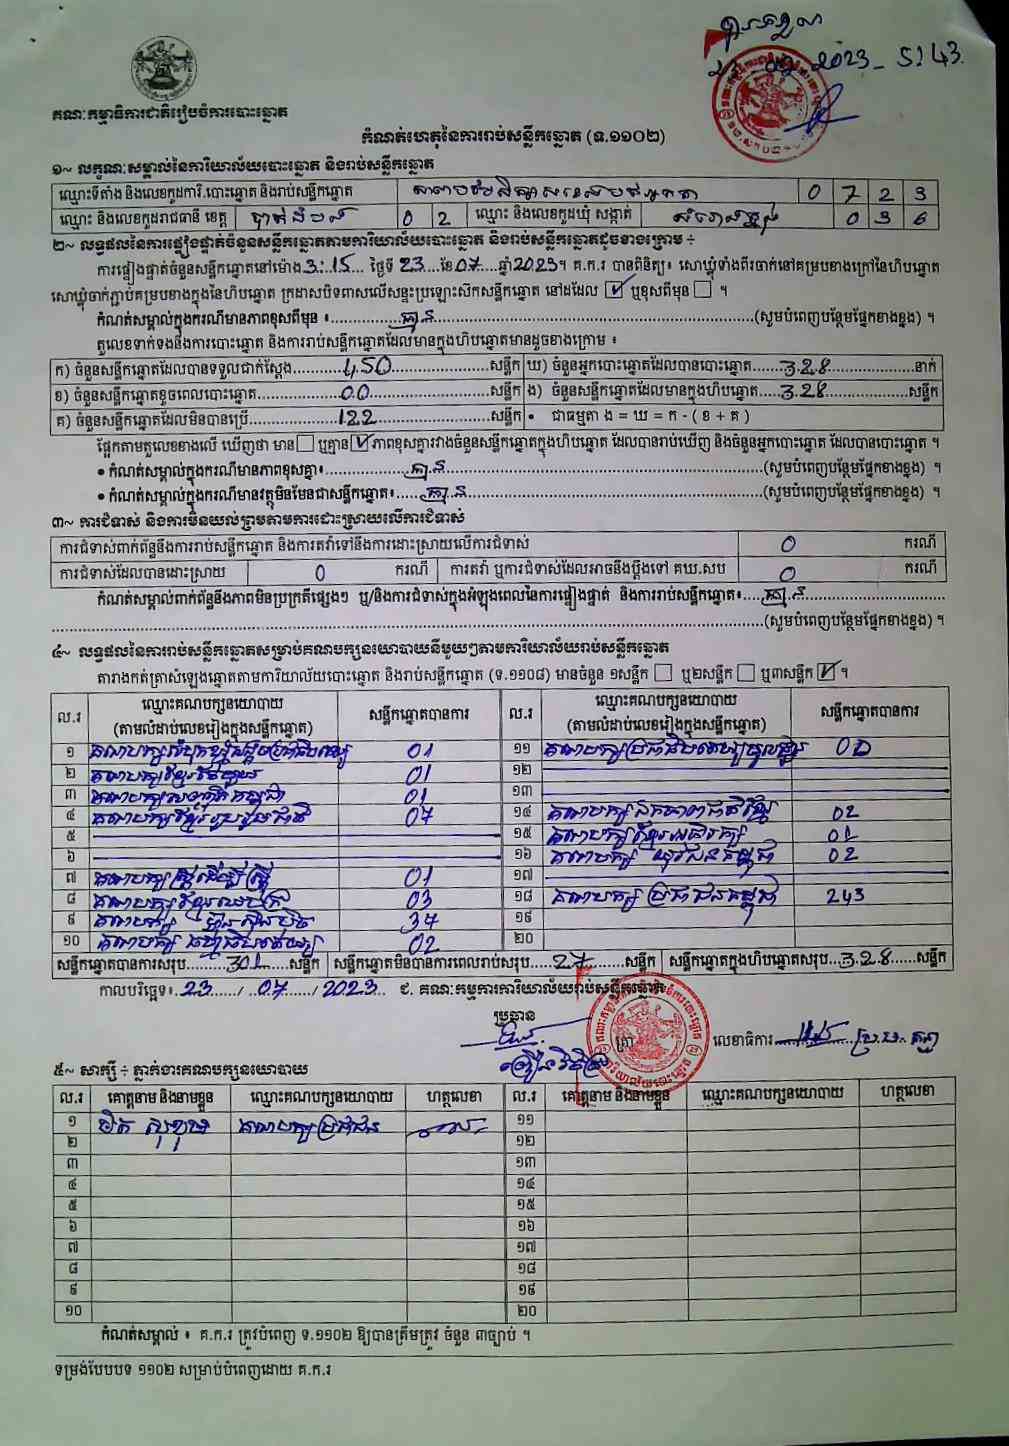 2023 _ 5:43
គណៈកម្មាធិការជាតិរៀបចំការបោះឆ្នោត
កំណត់ហេតុនៃការរាប់សន្លឹកឆ្នោត (ទ.១១០២)
១~ លក្ខណៈសម្គាល់នៃការិយាល័យបោះឆ្នោត និងរាប់សន្លឹកឆ្នោត
ឈ្មោះទីតាំង និងលេខកូដការិ.បោះឆ្នោត និងរាប់សន្លឹកឆ្នោត 0 7 2 3
ឈ្មោះ និងលេខកូដរាជធានី ខេត្ត បាត់ដំបង 0 2 ឈ្មោះ និងលេខកូដឃុំ សង្កាត់ 0 3 6
២~ លទ្ធផលនៃការផ្ទៀងផ្ទាត់ចំនួនសន្លឹកឆ្នោតតាមការិយាល័យបោះឆ្នោត និងរាប់សន្លឹកឆ្នោតដូចខាងក្រោម ÷
ការផ្ទៀងផ្ទាត់ចំនួនសន្លឹកឆ្នោតនៅម៉ោង 3:15 ថ្ងៃទី 23 ខែ 07 ឆ្នាំ 2023 ។ គ.ក.រ បានពិនិត្យ៖ សោឃ្លុំទាំងពីរចាក់នៅគម្របខាងក្រៅនៃហិបឆ្នោត
សោឃ្លុំចាក់ភ្ជាប់គម្របខាងក្នុងនៃហិបឆ្នោត ក្រដាសបិទពាសលើសន្ទះប្រឡោះស៊កសន្លឹកឆ្នោត នៅដដែល ☑ ឬខុសពីមុន ☐ ។
កំណត់សម្គាល់ក្នុងករណីមានភាពខុសពីមុន ៖ គ្មាន (សូមបំពេញបន្ថែមផ្នែកខាងខ្នង) ។
តួលេខទាក់ទងនឹងការបោះឆ្នោត និងការរាប់សន្លឹកឆ្នោតដែលមានក្នុងហិបឆ្នោតមានដូចខាងក្រោម ៖
ក) ចំនួនសន្លឹកឆ្នោតដែលបានទទួលជាក់ស្តែង 450 សន្លឹក ឃ) ចំនួនអ្នកបោះឆ្នោតដែលបានបោះឆ្នោត 328 នាក់
ខ) ចំនួនសន្លឹកឆ្នោតខូចពេលបោះឆ្នោត 00 សន្លឹក ង) ចំនួនសន្លឹកឆ្នោតដែលមានក្នុងហិបឆ្នោត 328 សន្លឹក
គ) ចំនួនសន្លឹកឆ្នោតដែលមិនបានប្រើ 122 សន្លឹក • ជាធម្មតា ង = ឃ = ក - ( ខ + គ )
ផ្អែកតាមតួលេខខាងលើ ឃើញថា មាន ☐ ឬគ្មាន ☑ ភាពខុសគ្នារវាងចំនួនសន្លឹកឆ្នោតក្នុងហិបឆ្នោត ដែលបានរាប់ឃើញ និងចំនួនអ្នកបោះឆ្នោត ដែលបានបោះឆ្នោត ។
• កំណត់សម្គាល់ក្នុងករណីមានភាពខុសគ្នា៖ គ្មាន (សូមបំពេញបន្ថែមផ្នែកខាងខ្នង) ។
• កំណត់សម្គាល់ក្នុងករណីមានវត្ថុមិនមែនជាសន្លឹកឆ្នោត៖ គ្មាន (សូមបំពេញបន្ថែមផ្នែកខាងខ្នង) ។
៣~ ការជំទាស់ និងការមិនយល់ព្រមតាមការដោះស្រាយលើការជំទាស់
ការជំទាស់ពាក់ព័ន្ធនឹងការរាប់សន្លឹកឆ្នោត និងការតវ៉ាទៅនឹងការដោះស្រាយលើការជំទាស់ 0 ករណី
ការជំទាស់ដែលបានដោះស្រាយ 0 ករណី ការតវ៉ា ឬការជំទាស់ដែលអាចនឹងប្តឹងទៅ គឃ.សប 0 ករណី
កំណត់សម្គាល់ពាក់ព័ន្ធនឹងភាពមិនប្រក្រតីផ្សេងៗ ឬ/និងការជំទាស់ក្នុងអំឡុងពេលនៃការផ្ទៀងផ្ទាត់ និងការរាប់សន្លឹកឆ្នោត៖ គ្មាន
(សូមបំពេញបន្ថែមផ្នែកខាងខ្នង) ។
៤~ លទ្ធផលនៃការរាប់សន្លឹកឆ្នោតសម្រាប់គណបក្សនយោបាយនីមួយៗតាមការិយាល័យរាប់សន្លឹកឆ្នោត
តារាងកត់ត្រាសំឡេងឆ្នោតតាមការិយាល័យបោះឆ្នោត និងរាប់សន្លឹកឆ្នោត (ទ.១១០៨) មានចំនួន ១សន្លឹក ☐ ឬ២សន្លឹក ☐ ឬ៣សន្លឹក ☑ ។
ល.រ ឈ្មោះគណបក្សនយោបាយ (តាមលំដាប់លេខរៀងក្នុងសន្លឹកឆ្នោត) សន្លឹកឆ្នោតបានការ ល.រ ឈ្មោះគណបក្សនយោបាយ (តាមលំដាប់លេខរៀងក្នុងសន្លឹកឆ្នោត) សន្លឹកឆ្នោតបានការ
១ គណបក្សសំបុកឃ្មុំសង្គមប្រជាធិបតេយ្យ 01 ១១ គណបក្សប្រជាធិបតេយ្យមូលដ្ឋាន 00
២ គណបក្សខ្មែរ 01 ១២
៣ គណបក្សសញ្ជាតិកម្ពុជា 01 ១៣
៤ គណបក្សខ្មែររួបរួមជាតិ 07 ១៤ គណបក្សឯកភាពជាតិខ្មែរ 02
៥ ១៥ គណបក្សខ្មែរអភិរក្ស 01
៦ ១៦ គណបក្សយុវជនកម្ពុជា 02
៧ គណបក្សស្ត្រីដើម្បីស្ត្រី 01 ១៧
៨ គណបក្សខ្មែរឈប់ក្រ 03 ១៨ គណបក្សប្រជាជនកម្ពុជា 243
៩ គណបក្ស ហ្វ៊ុនស៊ិនប៉ិច 37 ១៩
១០ គណបក្ស ធម្មាធិបតេយ្យ 02 ២០
សន្លឹកឆ្នោតបានការសរុប 301 សន្លឹក សន្លឹកឆ្នោតមិនបានការពេលរាប់សរុប 27 សន្លឹក សន្លឹកឆ្នោតក្នុងហិបឆ្នោតសរុប 328 សន្លឹក
កាលបរិច្ឆេទ៖ 23 / 07 / 2023 ជ. គណៈកម្មការការិយាល័យរាប់សន្លឹកឆ្នោត
ប្រធាន
ត្រា លេខាធិការ
៥~ សាក្សី ÷ ភ្នាក់ងារគណបក្សនយោបាយ
ល.រ គោត្តនាម និងនាមខ្លួន ឈ្មោះគណបក្សនយោបាយ ហត្ថលេខា ល.រ គោត្តនាម និងនាមខ្លួន ឈ្មោះគណបក្សនយោបាយ ហត្ថលេខា
១ គណបក្សប្រជាជន ១១
២ ១២
៣ ១៣
៤ ១៤
៥ ១៥
៦ ១៦
៧ ១៧
៨ ១៨
៩ ១៩
១០ ២០
កំណត់សម្គាល់ ៖ គ.ក.រ ត្រូវបំពេញ ទ.១១០២ ឱ្យបានត្រឹមត្រូវ ចំនួន ៣ច្បាប់ ។
ទម្រង់បែបបទ ១១០២ សម្រាប់បំពេញដោយ គ.ក.រ